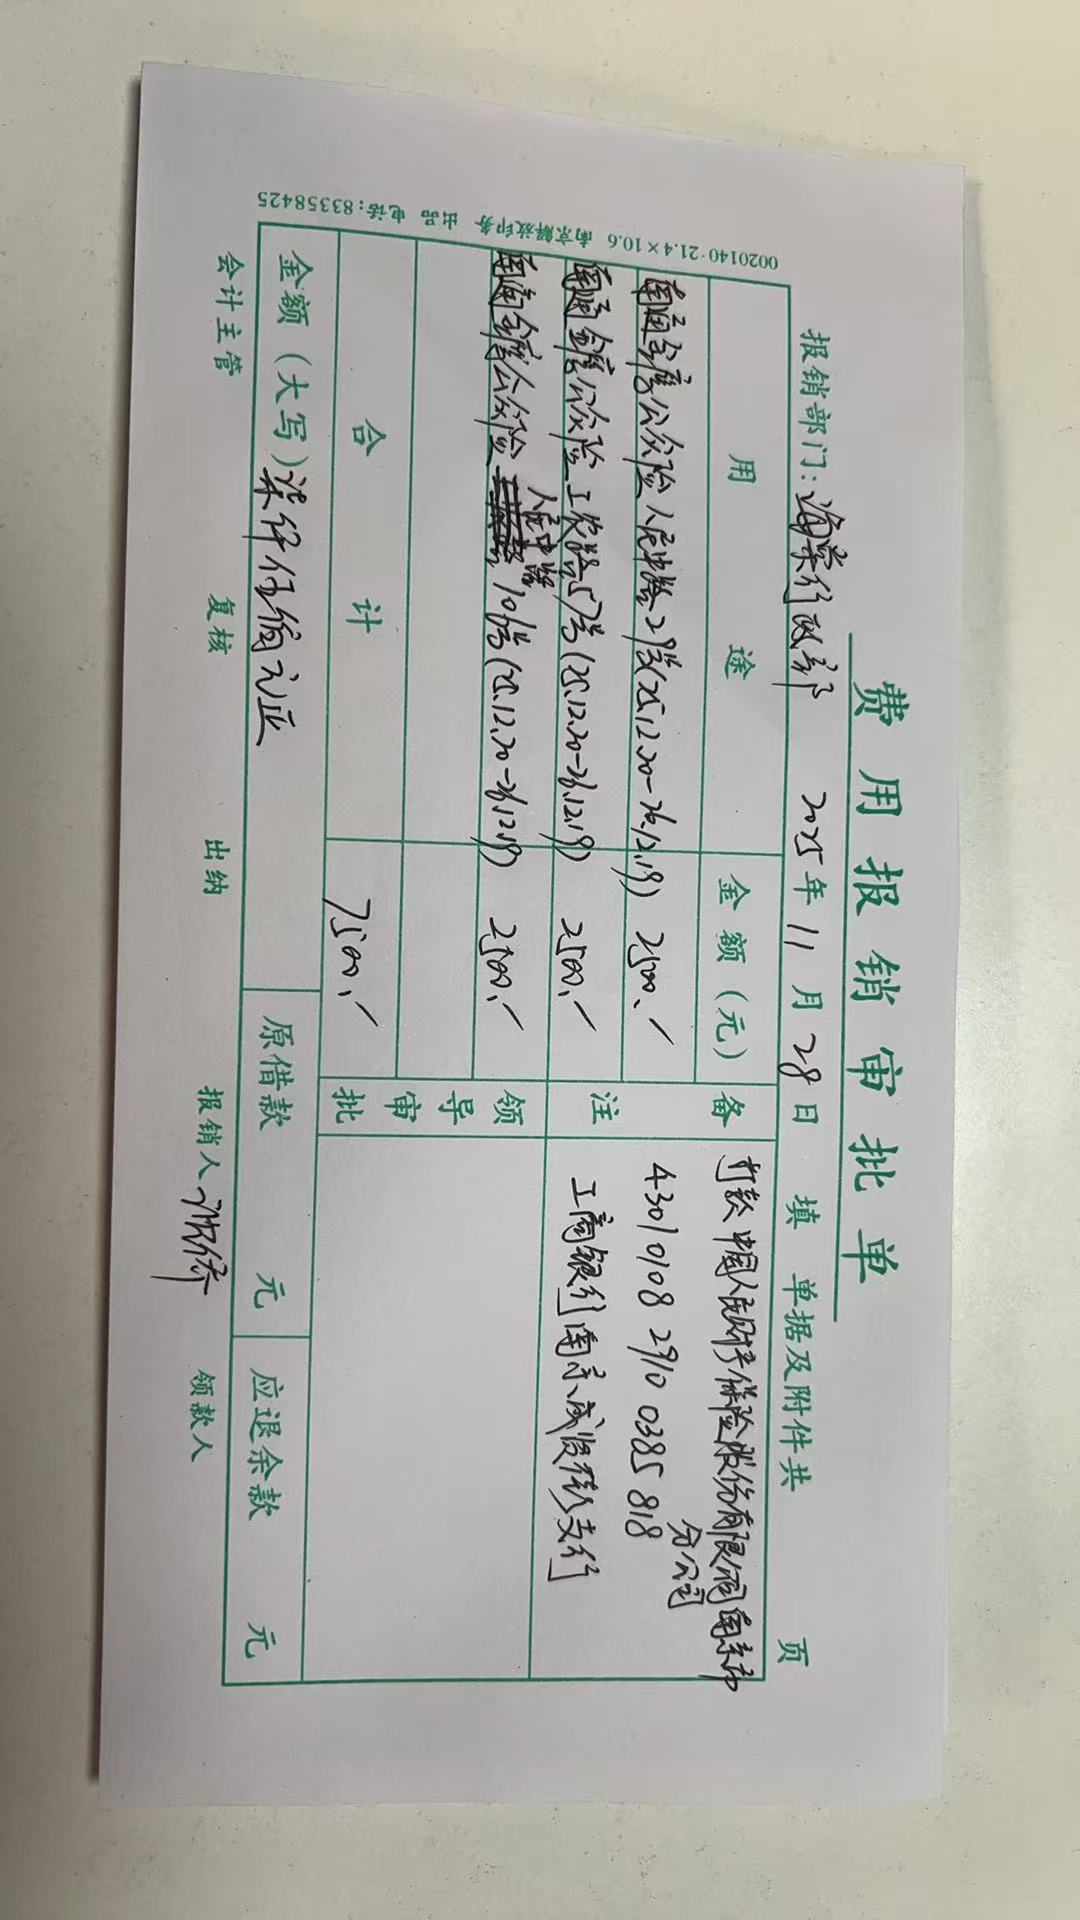 费用报销审批单
报销部门：海荣行政部 2025年11月28日 填 单据及附件共 页
用途 金额（元） 备注
南通 公众险 人民中路29号(25.12.20-26.12.19) 2500.-
南通 公众险 工农路57号(25.12.20-26.12.19) 2500.-
人民中路
南通 公众险 106号(25.12.20-26.12.19) 2500.-
合计 7500.-
打款 中国人民财产保险股份有限公司南京市
分公司
4301 0108 2910 0385 818
工商银行南京 支行
领导审批
金额（大写）柒仟伍佰元正 原借款 元 应退余款 元
会计主管 复核 出纳 报销人 领款人
0020140·21.4×10.6 南京解放印务 出品 电话：83358425